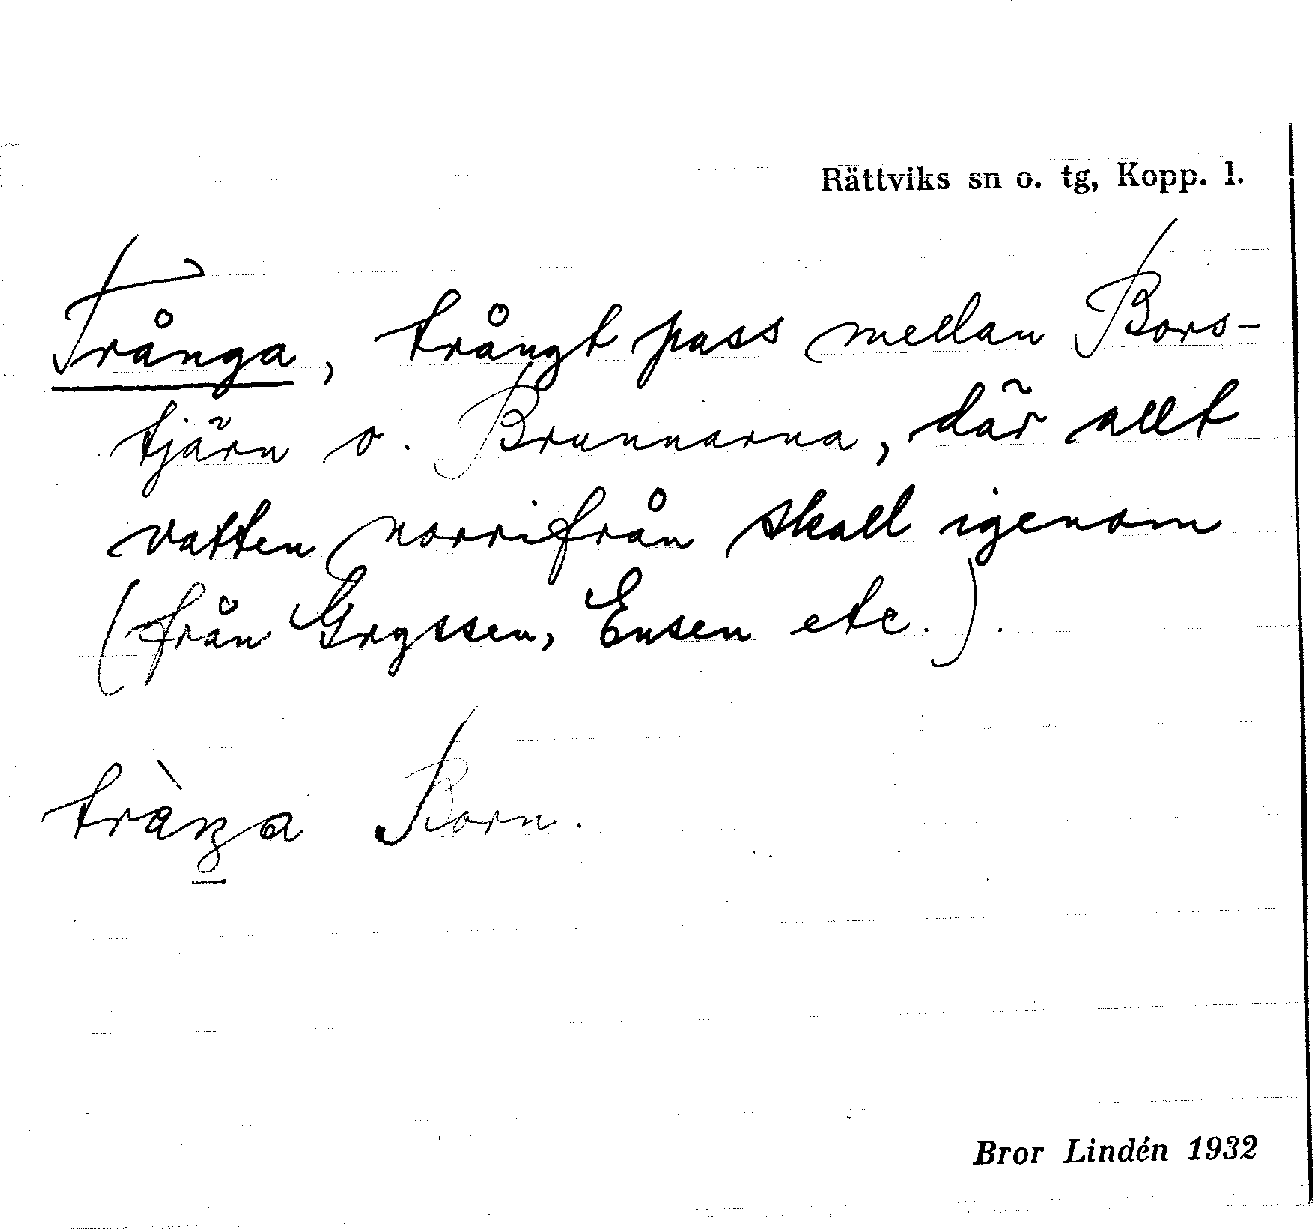 Rättviks sn o. tg, Kopp. l.
Trånga, trångt pass mellan Bors-
tjärn o. Brunnarna, där allt
vatten norrifrån skall igenom
(från Gryssen, Ensen etc.).
Born.
Bror Lindén 1932